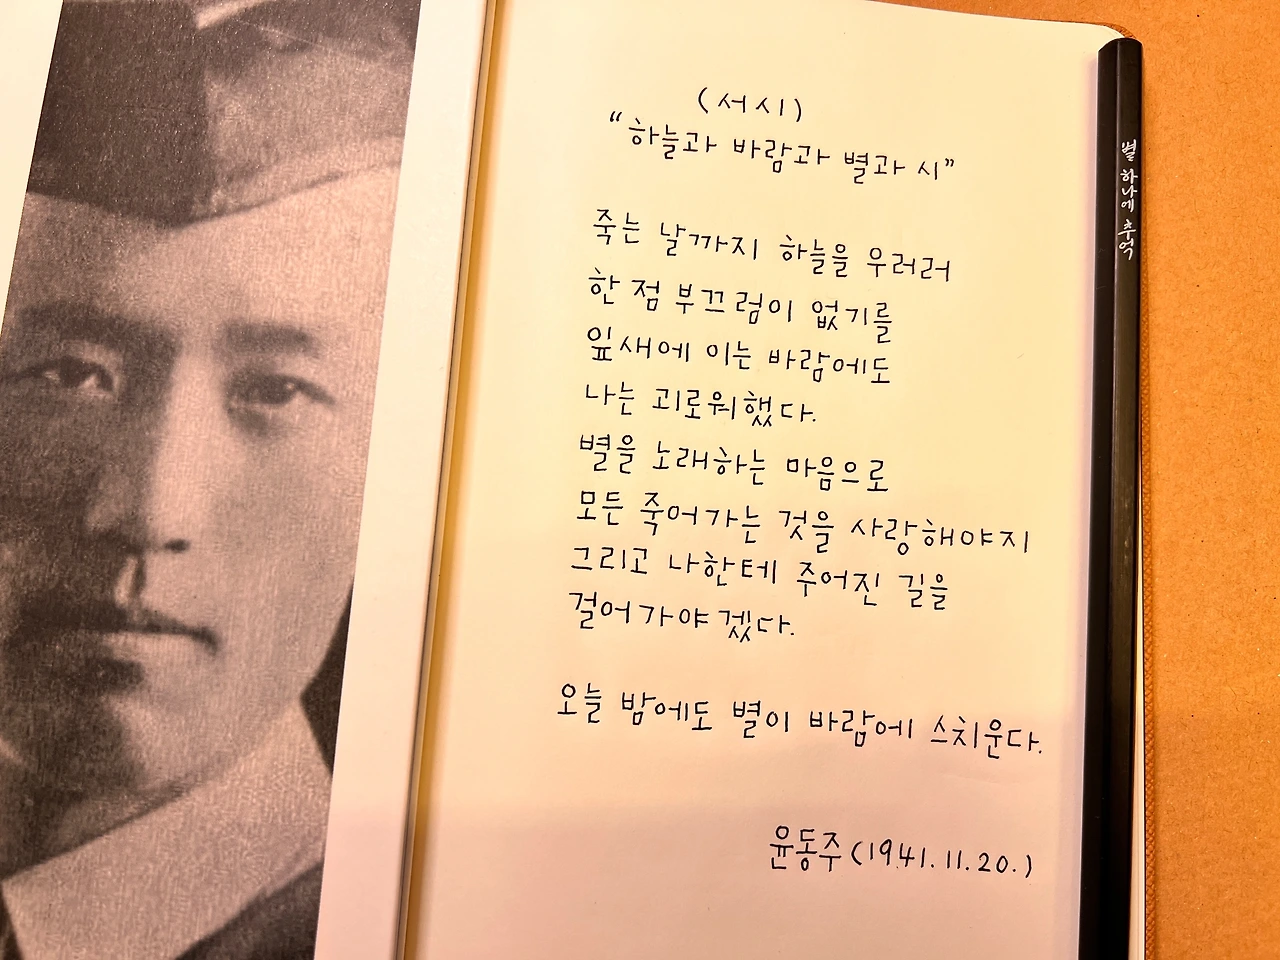 (서시)
“하늘과 바람과 별과 시”
죽는 날까지 하늘을 우러러
한 점 부끄럼이 없기를
잎새에 이는 바람에도
나는 괴로워했다.
별을 노래하는 마음으로
모든 죽어가는 것을 사랑해야지
그리고 나한테 주어진 길을
걸어가야겠다.
오늘 밤에도 별이 바람에 스치운다.
윤동주(1941.11.20.)
별 하나에 추억